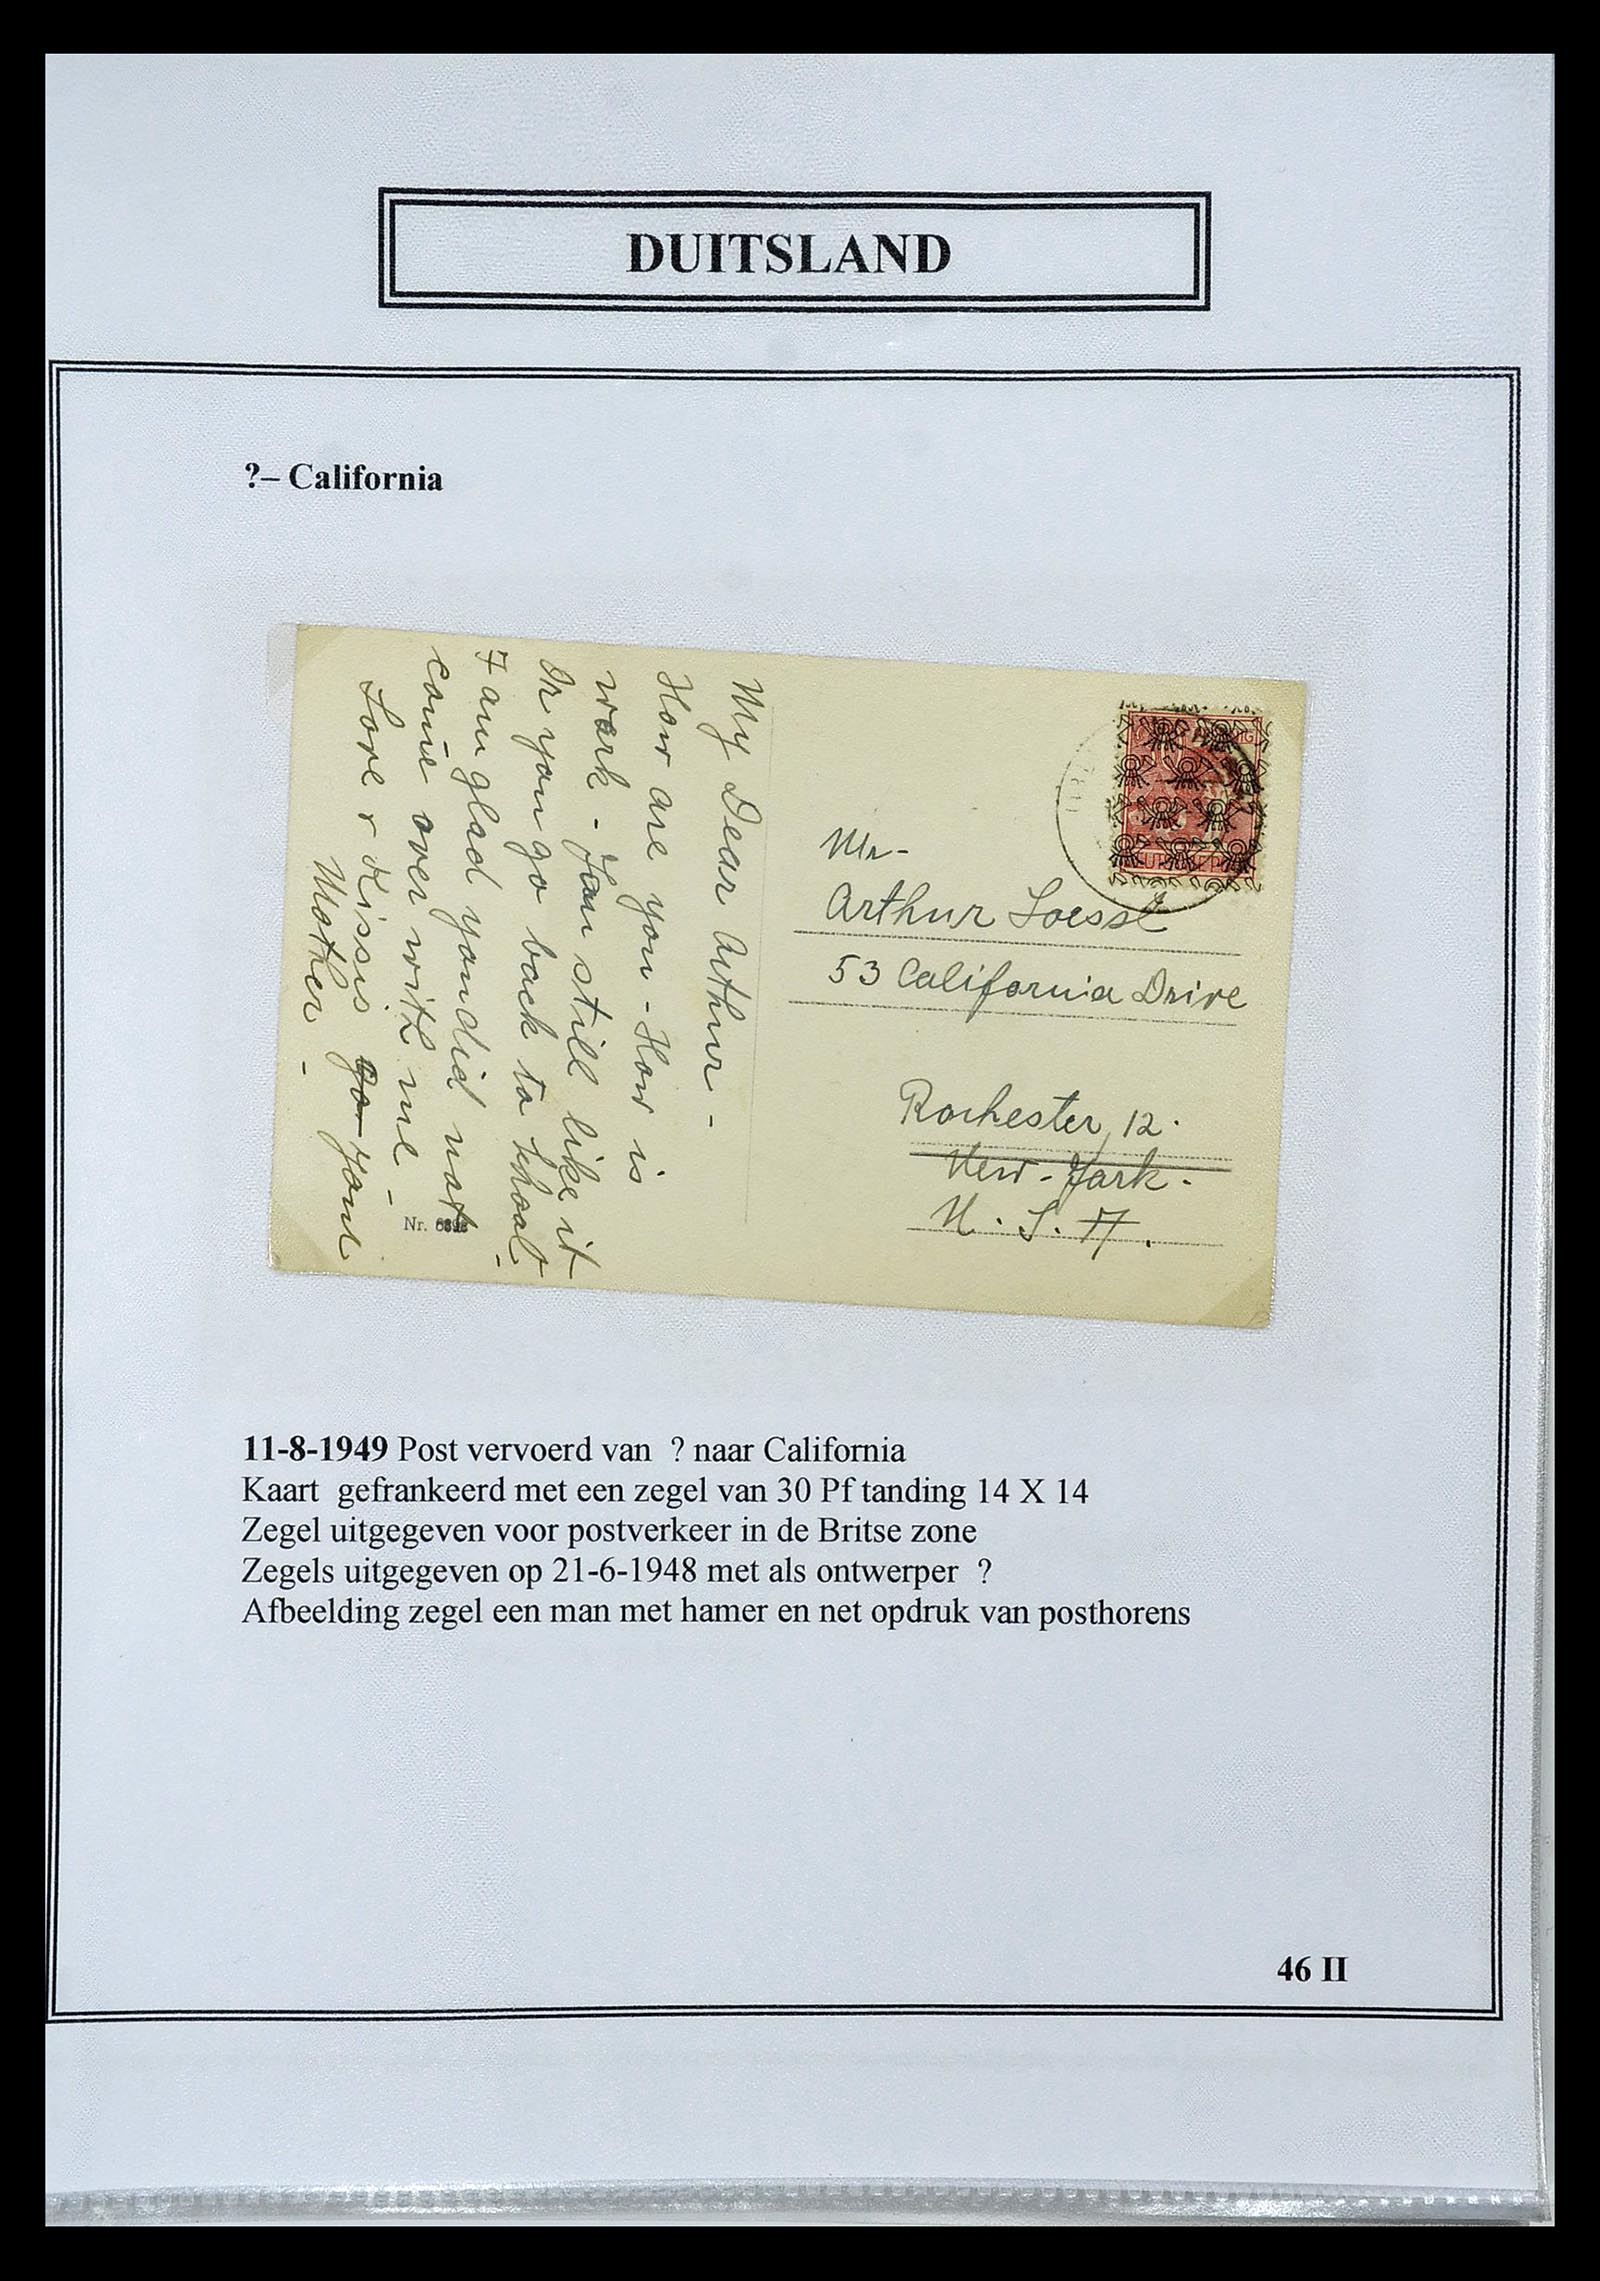 DUITSLAND
?– California
My Dear Arthur -
How are you - How is
work - You still like it
Or you go back to school -
I am glad you did not
come over with me -
Love & Kissis Yo Your
Mother -
Nr.
Mr-
Arthur Loessl
53 California Drive
Rochester 12.
New-York-
U. S. A.
11-8-1949 Post vervoerd van  ? naar California
Kaart  gefrankeerd met een zegel van 30 Pf tanding 14 X 14
Zegel uitgegeven voor postverkeer in de Britse zone
Zegels uitgegeven op 21-6-1948 met als ontwerper  ?
Afbeelding zegel een man met hamer en net opdruk van posthorens
46 II